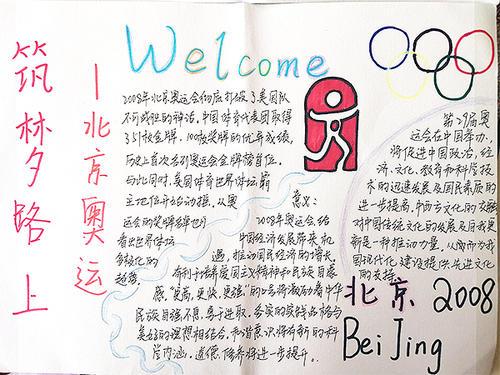 筑梦路上
—北京奥运
Welcome
2008年北京奥运会彻底打破了美国队
不可战胜的神话，中国体育代表团取得
了51枚金牌，100枚奖牌的优异成绩，
历史上首次名列奥运会金牌榜首位。
与此同时，美国体育世界体坛霸
主地位开始动摇，从奥
运会的奖牌榜也
看出世界体坛
多极化的
趋势。
意义：
2008年奥运会给
中国经济发展带来机
遇，推动国民经济的增长。
有利于培养爱国主义精神和民族自豪
感，"更高，更快，更强"的口号将激励着中华
民族自强不息，勇于进取，务实的实践品格与
美好的理想相结合，和谐意识将有新的科
学内涵，道德，修养将进一步提升。
第29届奥
运会在中国举办，
将促进中国政治，经
济，文化，教育和科学技
术的迅速发展及国民素质的
进一步提高，中西方文化的交融
对中国传统文化的发展及自我更
新是一种推动力量，从而为我
国现代化建设提供先进文化
的支撑。
北京 2008
BeiJing